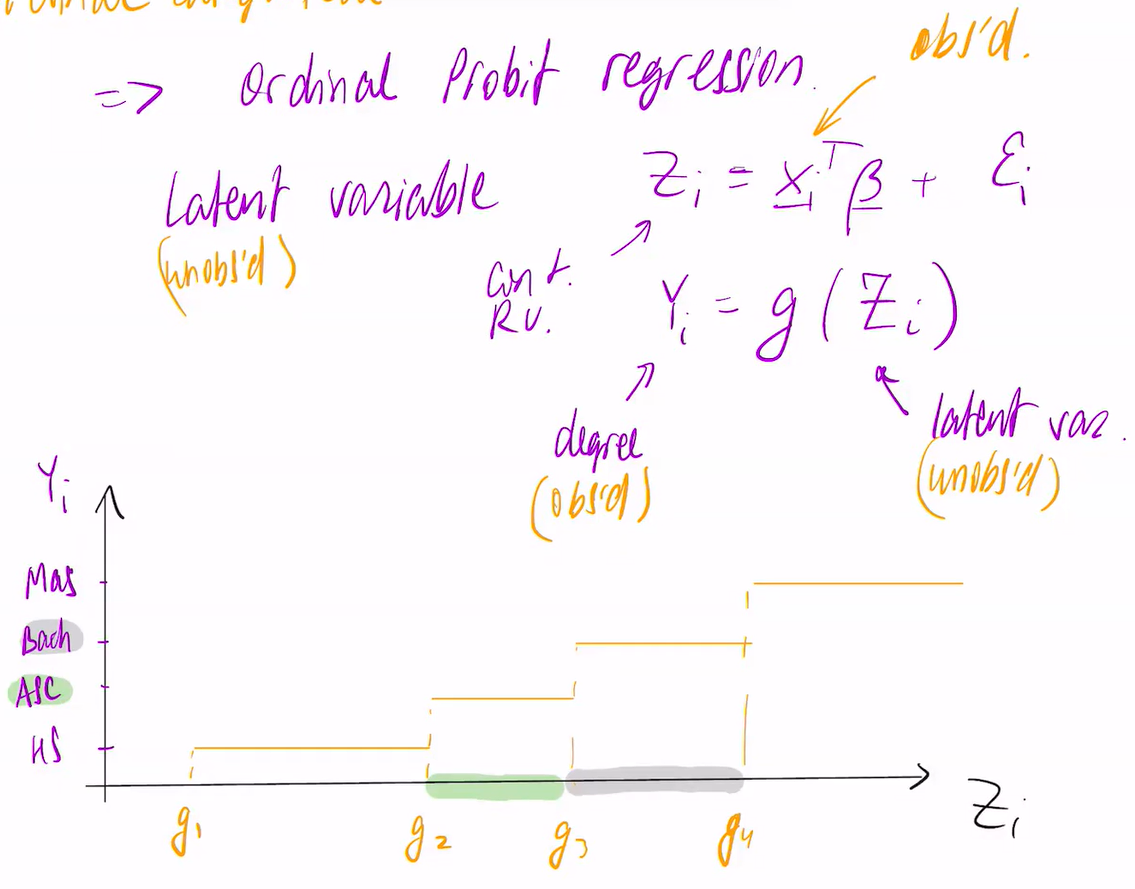 => Ordinal Probit regression.
obs'd.
Latent variable
(unobs'd)
Zᵢ = xᵢᵀ β + εᵢ
cont.
RV.
Yᵢ = g(Zᵢ)
degree
(obs'd)
latent var.
(unobs'd)
Yᵢ
Mas
Bach
ASC
HS
g₁ g₂ g₃ g₄
Zᵢ